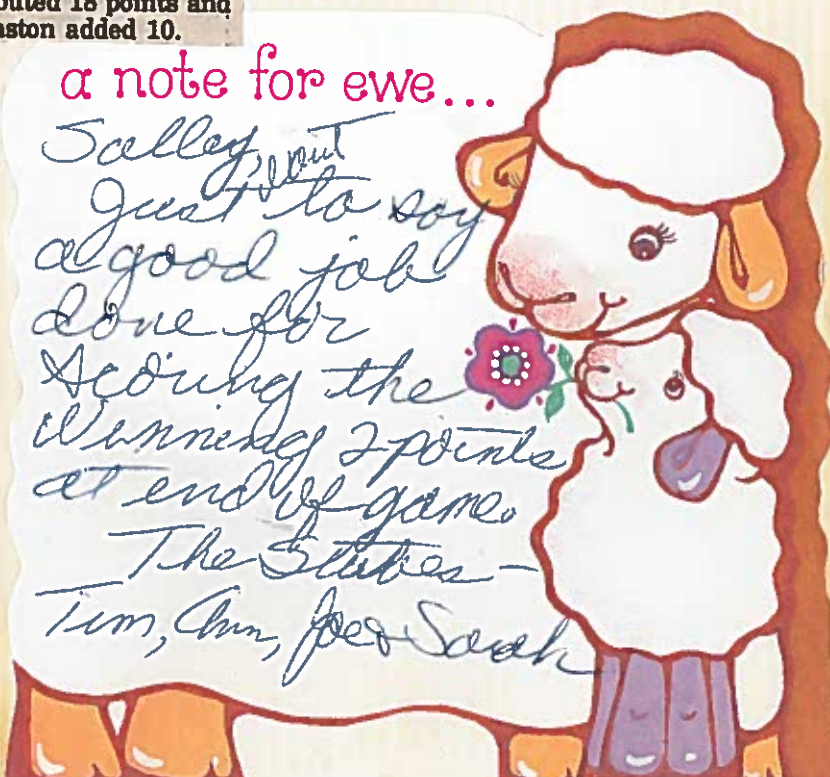 outed 18 points and
aston added 10.
a note for ewe...
Salley,
Just want to say
a good job
done for
scoring the
winning 2 points
at end of game.
The
Tim, Ann, Joe & Sarah